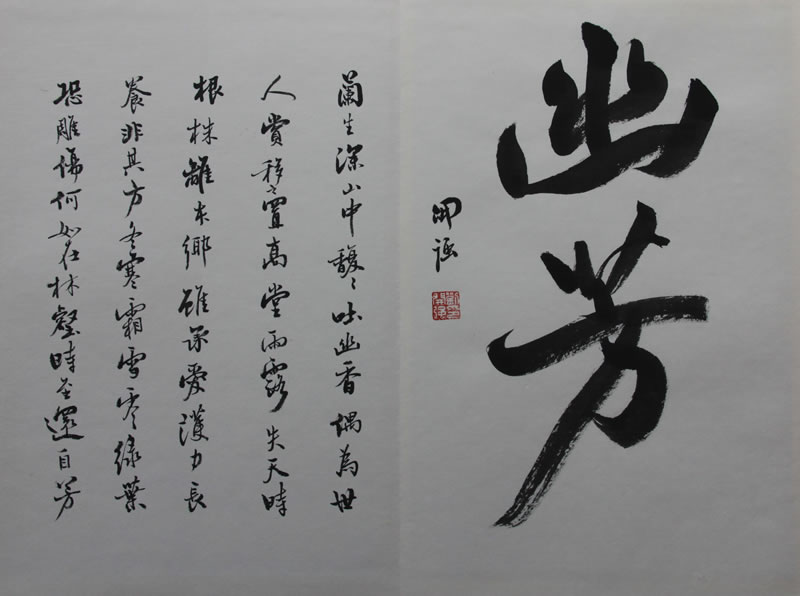 幽芳
蘭生深山中馥々吐幽香偶為世
人賞移之置高堂雨露失天時
根株離本鄉雖承愛護力長
養非其方冬寒霜雪零綠葉
恐雕傷何如在林壑時至還自芳